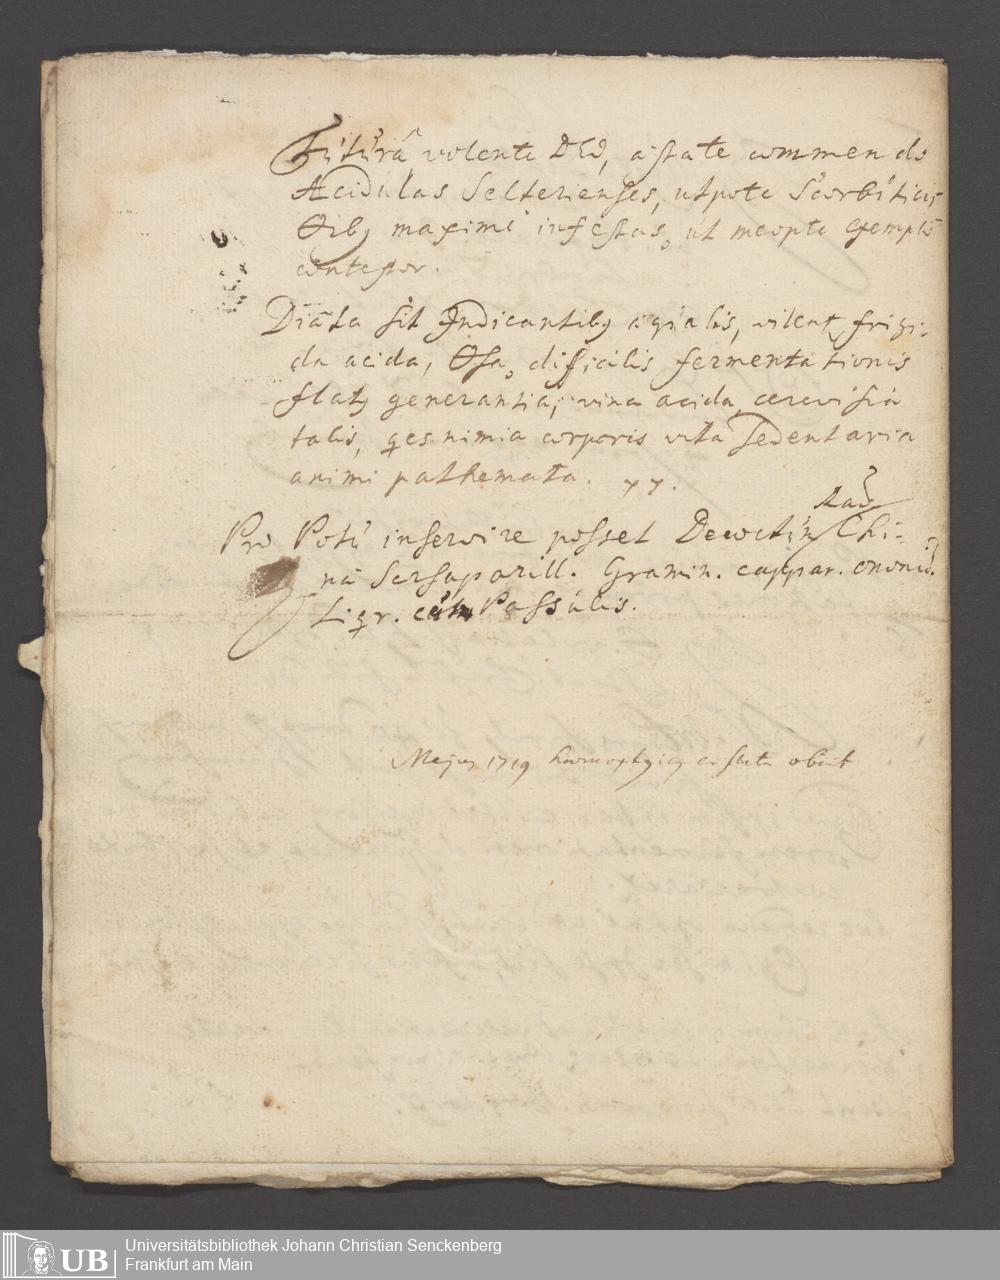 Futurâ volente DEO, æstate commendo
Acidulas Selterienses, utpote Scorbuticis
maximè infestas, ut meopte exemplo
contestor.
Diæta sit Indicantibq æqualis, vitent frigi-
da acida, difficilis fermentationis
flatq generantia, vina acida, cerevisia
talis, qes nimia corporis vita sedentaria
animi pathemata.
Rad
Pro Potu inservire posset Decoctum Chi-
næ Sarsaparill. Gramin. cappar. ononid.
Liqr. cum Passulis.
Majus 1719 hæmoptyicq obiit
UB
Universitätsbibliothek Johann Christian Senckenberg
Frankfurt am Main